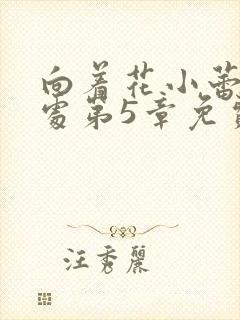 向着花小蕾
处第5章免费
汪秀丽